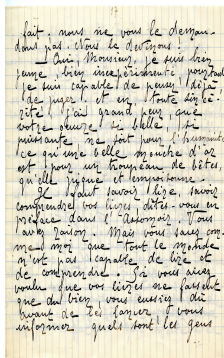 fait, nous ne vous le deman-
dons pas. Nous le devinons.
Oui, Monsieur, je suis bien
jeune, bien inexpérimentée, pourtant
je suis capable de penser déjà,
de juger, et en toute sincé-
rité j'ai grand peur que
votre œuvre si belle, si
puissante ne soit pour l'humanité
ce qu'une belle mouche d'or
est pour un troupeau de bêtes,
qu'elle pique et empoisonne.
Il faut savoir lire, savoir
comprendre vos livres, dites-vous en
préface dans l'Assomoir. Vous
avez raison. Mais vous savez com-
me moi que tout le monde
n'est pas capable de lire et
de comprendre. Si vous aviez
voulu que vos livres ne fassent
que du bien, vous eussiez dû
avant de les lancer vous
informer quels sont les gens